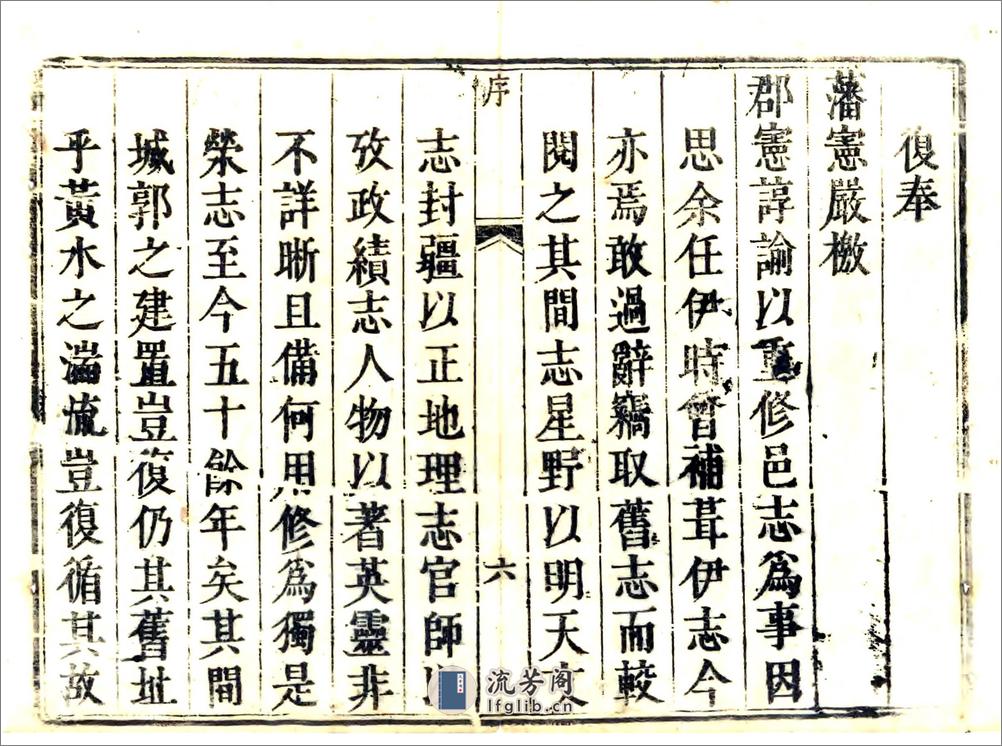 復奉
藩憲嚴檄
郡憲諄諭以重修邑志爲事因
思余任伊時曾補葺伊志今
亦焉敢過辭竊取舊志而較
閱之其間志星野以明天文
序
六
志封疆以正地理志官師以
攷政績志人物以著英靈非
不詳晰且備何用修爲獨是
榮志至今五十餘年矣其間
城郭之建置豈復仍其舊址
乎黃水之湍流豈復循其故
流芳阁
lfglib.cn